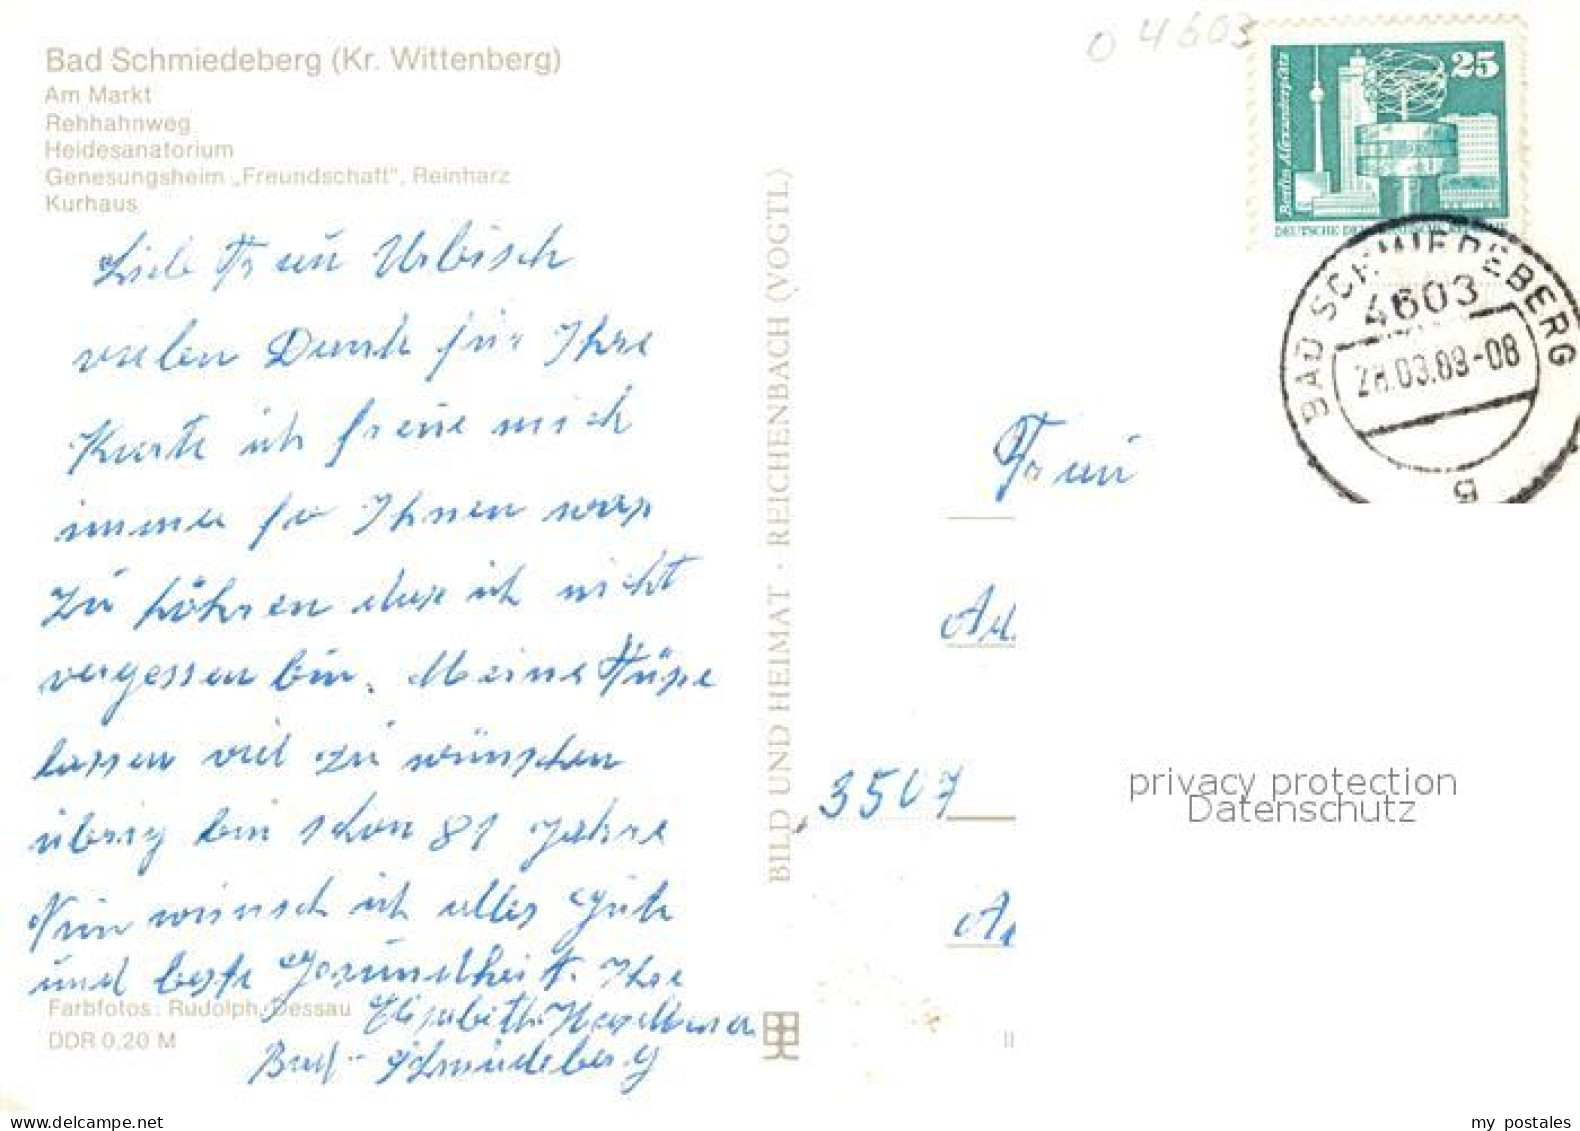 Bad Schmiedeberg (Kr. Wittenberg)
Am Markt
Rehhahnweg
Heidesanatorium
Genesungsheim „Freundschaft“, Reinharz
Kurhaus
Liebe Frau Urbisch
vielen Dank für Ihre
Karte ich freue mich
immer fo Ihnen was
zu höhren das ich nicht
vergessen bin. Meine Füße
lassen viel zu wünschen
übrig bin schon 81 Jahre
Nun wünsch ich alles Gute
und beste Gesundheit. Ihre
Elisabeth
Bad-Schmiedeberg
Farbfotos: Rudolph, Dessau
DDR 0,20 M
BILD UND HEIMAT · REICHENBACH (VOGTL)
04603
25
Berlin Alexanderplatz
BAD SCHMIEDEBERG
4603
28.03.89-08
Frau
3507
privacy protection
Datenschutz
my postales